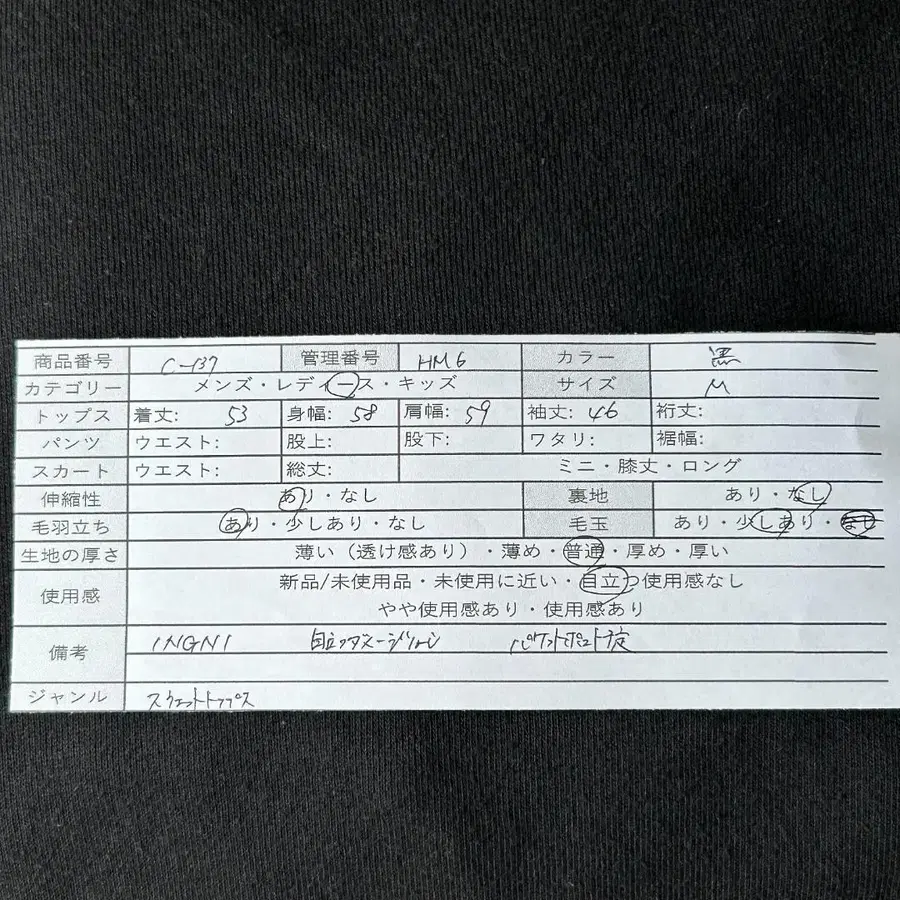 商品番号 C-137 管理番号 HM6 カラー 黒
カテゴリー メンズ・レディース・キッズ サイズ M
トップス 着丈: 53 身幅: 58 肩幅: 59 袖丈: 46 裄丈:
パンツ ウエスト: 股上: 股下: ワタリ: 裾幅:
スカート ウエスト: 総丈: ミニ・膝丈・ロング
伸縮性 あり・なし 裏地 あり・なし
毛羽立ち あり・少しあり・なし 毛玉 あり・少しあり・なし
生地の厚さ 薄い（透け感あり）・薄め・普通・厚め・厚い
使用感 新品/未使用品・未使用に近い・目立つ使用感なし
やや使用感あり・使用感あり
備考 INGNI
ジャンル スウェットトップス